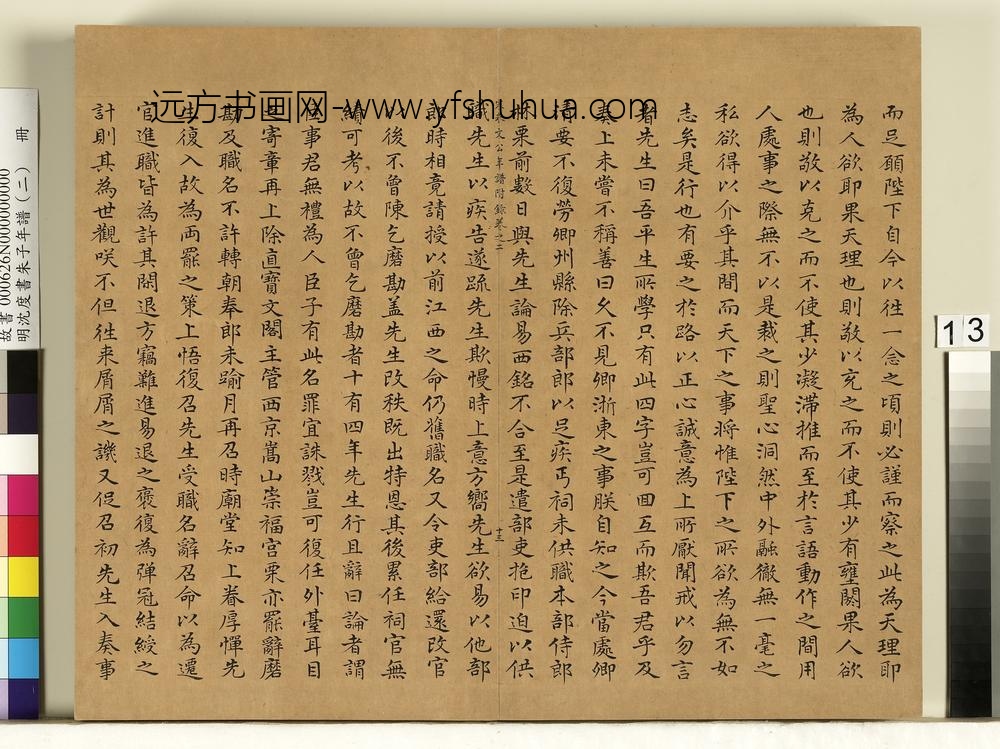 而足願陛下自今以往一念之頃則必謹而察之此為天理耶
為人欲耶果天理也則敬以充之而不使其少有壅閼果人欲
也則敬以克之而不使其少凝滯推而至於言語動作之間用
人處事之際無不以是裁之則聖心洞然中外融徹無一毫之
私欲得以介乎其間而天下之事将惟陛下之所欲為無不如
志矣是行也有要之於路以正心誠意為上所厭聞戒以勿言
者先生曰吾平生所學只有此四字豈可回互而欺吾君乎及
奏上未嘗不稱善曰久不見卿浙東之事朕自知之今當處卿
清要不復勞卿州縣除兵部郎以足疾丐祠未供職本部侍郎
林栗前數日與先生論易西銘不合至是遣部吏抱印迫以供
朱文公年譜附錄卷之二
十三
職先生以疾告遂䟽先生欺慢時上意方嚮先生欲易以他部
郎時相竟請授以前江西之命仍舊職名又令吏部給還改官
以後不曾陳乞磨勘盖先生改秩既出特恩其後累任祠官無
績可考以故不曾乞磨勘者十有四年先生行且辭曰論者謂
臣事君無禮為人臣子有此名罪宜誅戮豈可復任外臺耳目
之寄章再上除直寶文閣主管西京嵩山崇福宫栗亦罷辭磨
勘及職名不許轉朝奉郎未踰月再召時廟堂知上眷厚憚先
生復入故為両罷之策上悟復召先生受職名辭召命以為遷
官進職皆為許其閑退方竊難進易退之褒復為彈冠結綬之
計則其為世觀咲不但徃来屑屑之譏又促召初先生入奏事
远方书画网-www.yfshuhua.com
故書 000626N000000000
明沈度書朱子年譜(二) 冊
13